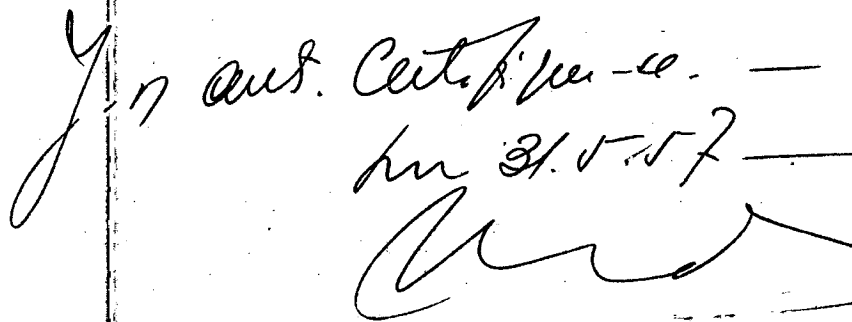 J. n aut. Certifique-se. —
Em 31.5.57 —